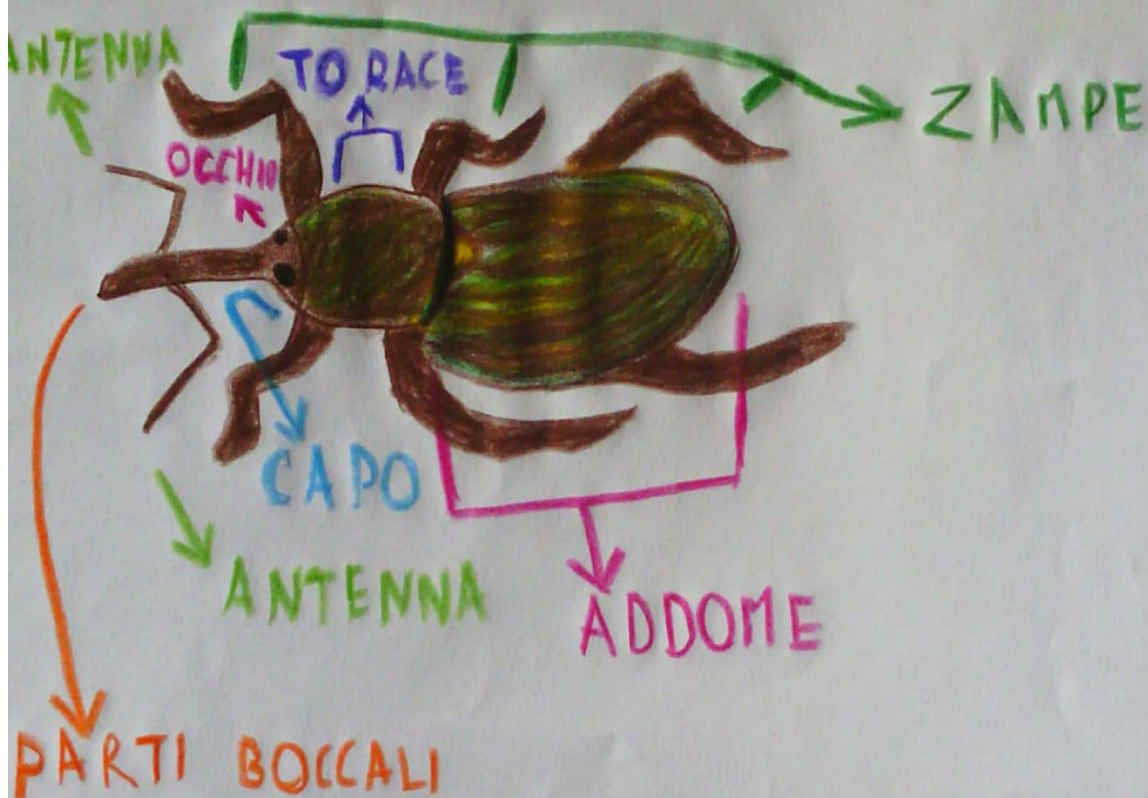 ANTENNA
TORACE
ZAMPE
OCCHIO
CAPO
ANTENNA
ADDOME
PARTI BOCCALI